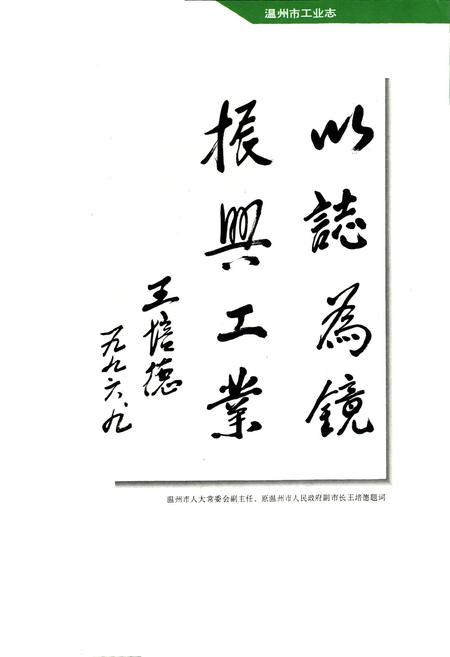 温州市工业志
以誌為鏡
振興工業
王培德
一九九六、九
温州市人大常委会副主任、原温州市人民政府副市长王培德题词